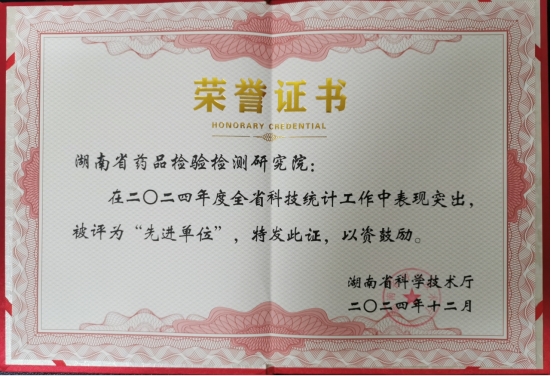 荣誉证书
HONORARY CREDENTIAL
湖南省药品检验检测研究院：
在二〇二四年度全省科技统计工作中表现突出，
被评为“先进单位”，特发此证，以资鼓励。
湖南省科学技术厅
二〇二四年十二月